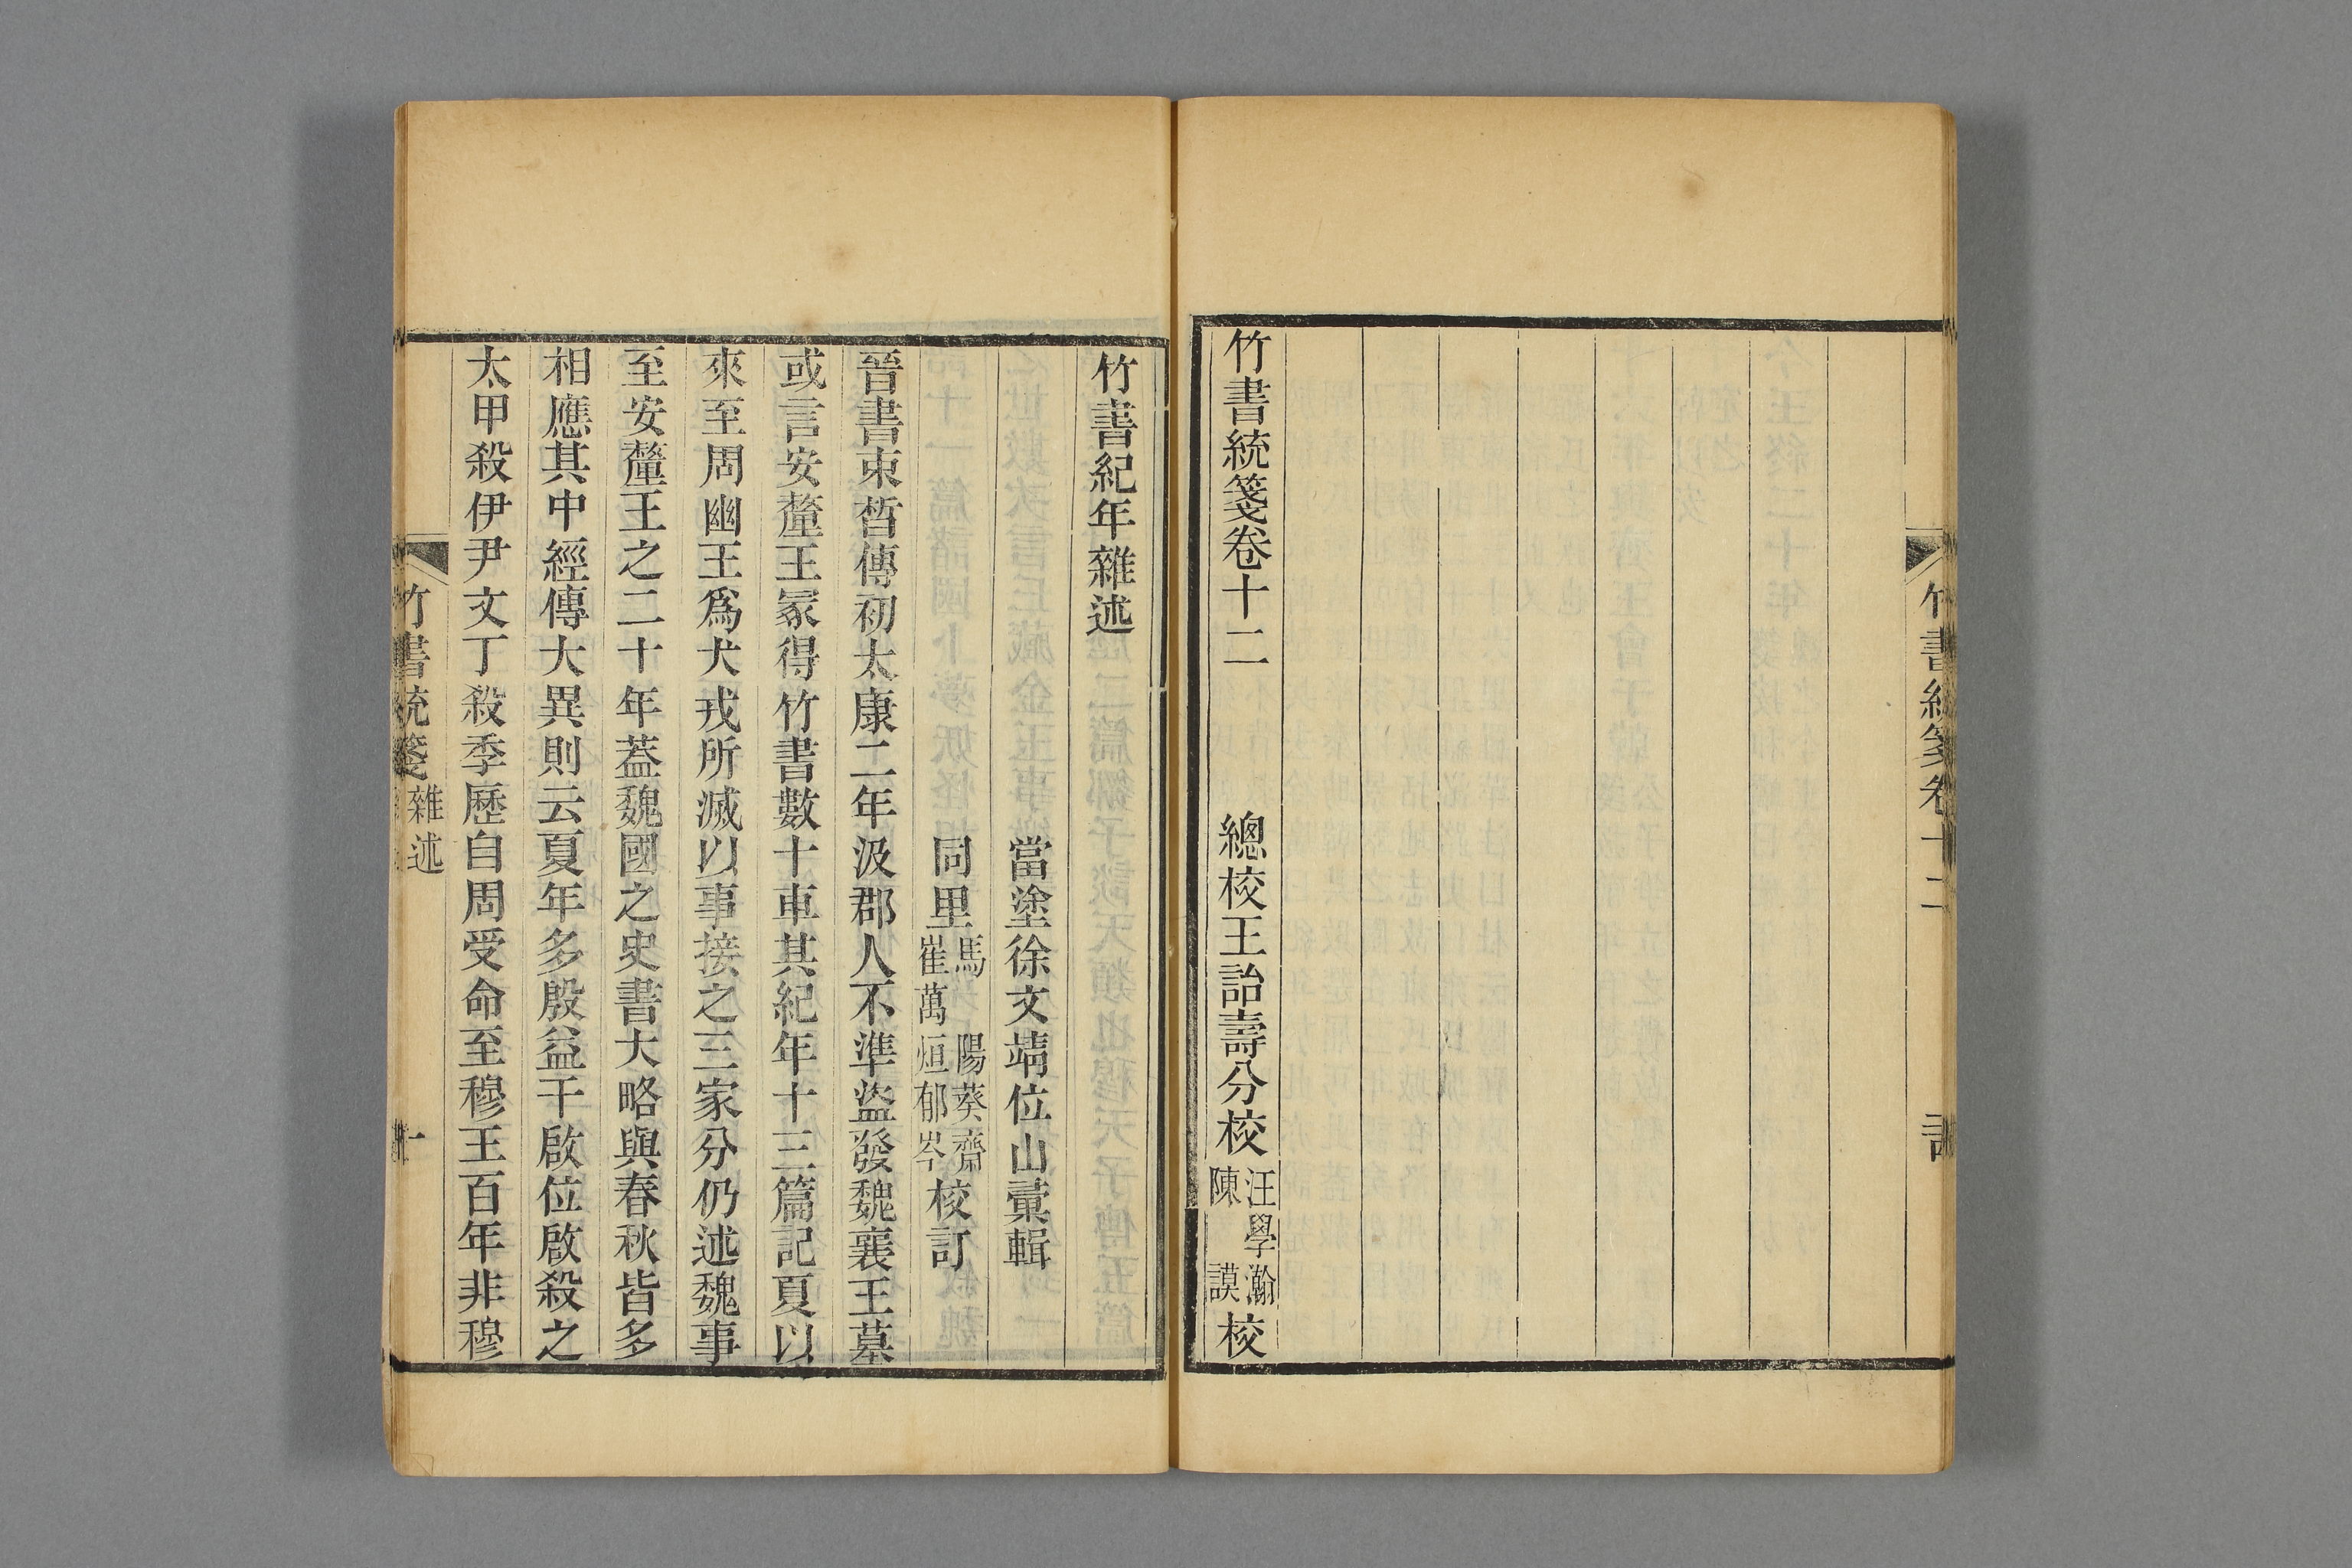 竹書統箋卷十二
竹書統箋卷十二　總校王詒壽分校汪學瀚陳謨校
竹書紀年雜述
當塗徐文靖位山彚輯
同里馬陽葵齋崔萬烜郁岑校訂
晉書束晳傳初太康二年汲郡人不準盜發魏襄王墓
或言安釐王冢得竹書數十車其紀年十三篇記夏以
來至周幽王爲犬戎所滅以事接之三家分仍述魏事
至安釐王之二十年葢魏國之史書大略與春秋皆多
相應其中經傳大異則云夏年多殷益干啟位啟殺之
太甲殺伊尹文丁殺季歷自周受命至穆王百年非穆
竹書統箋　雜述　一